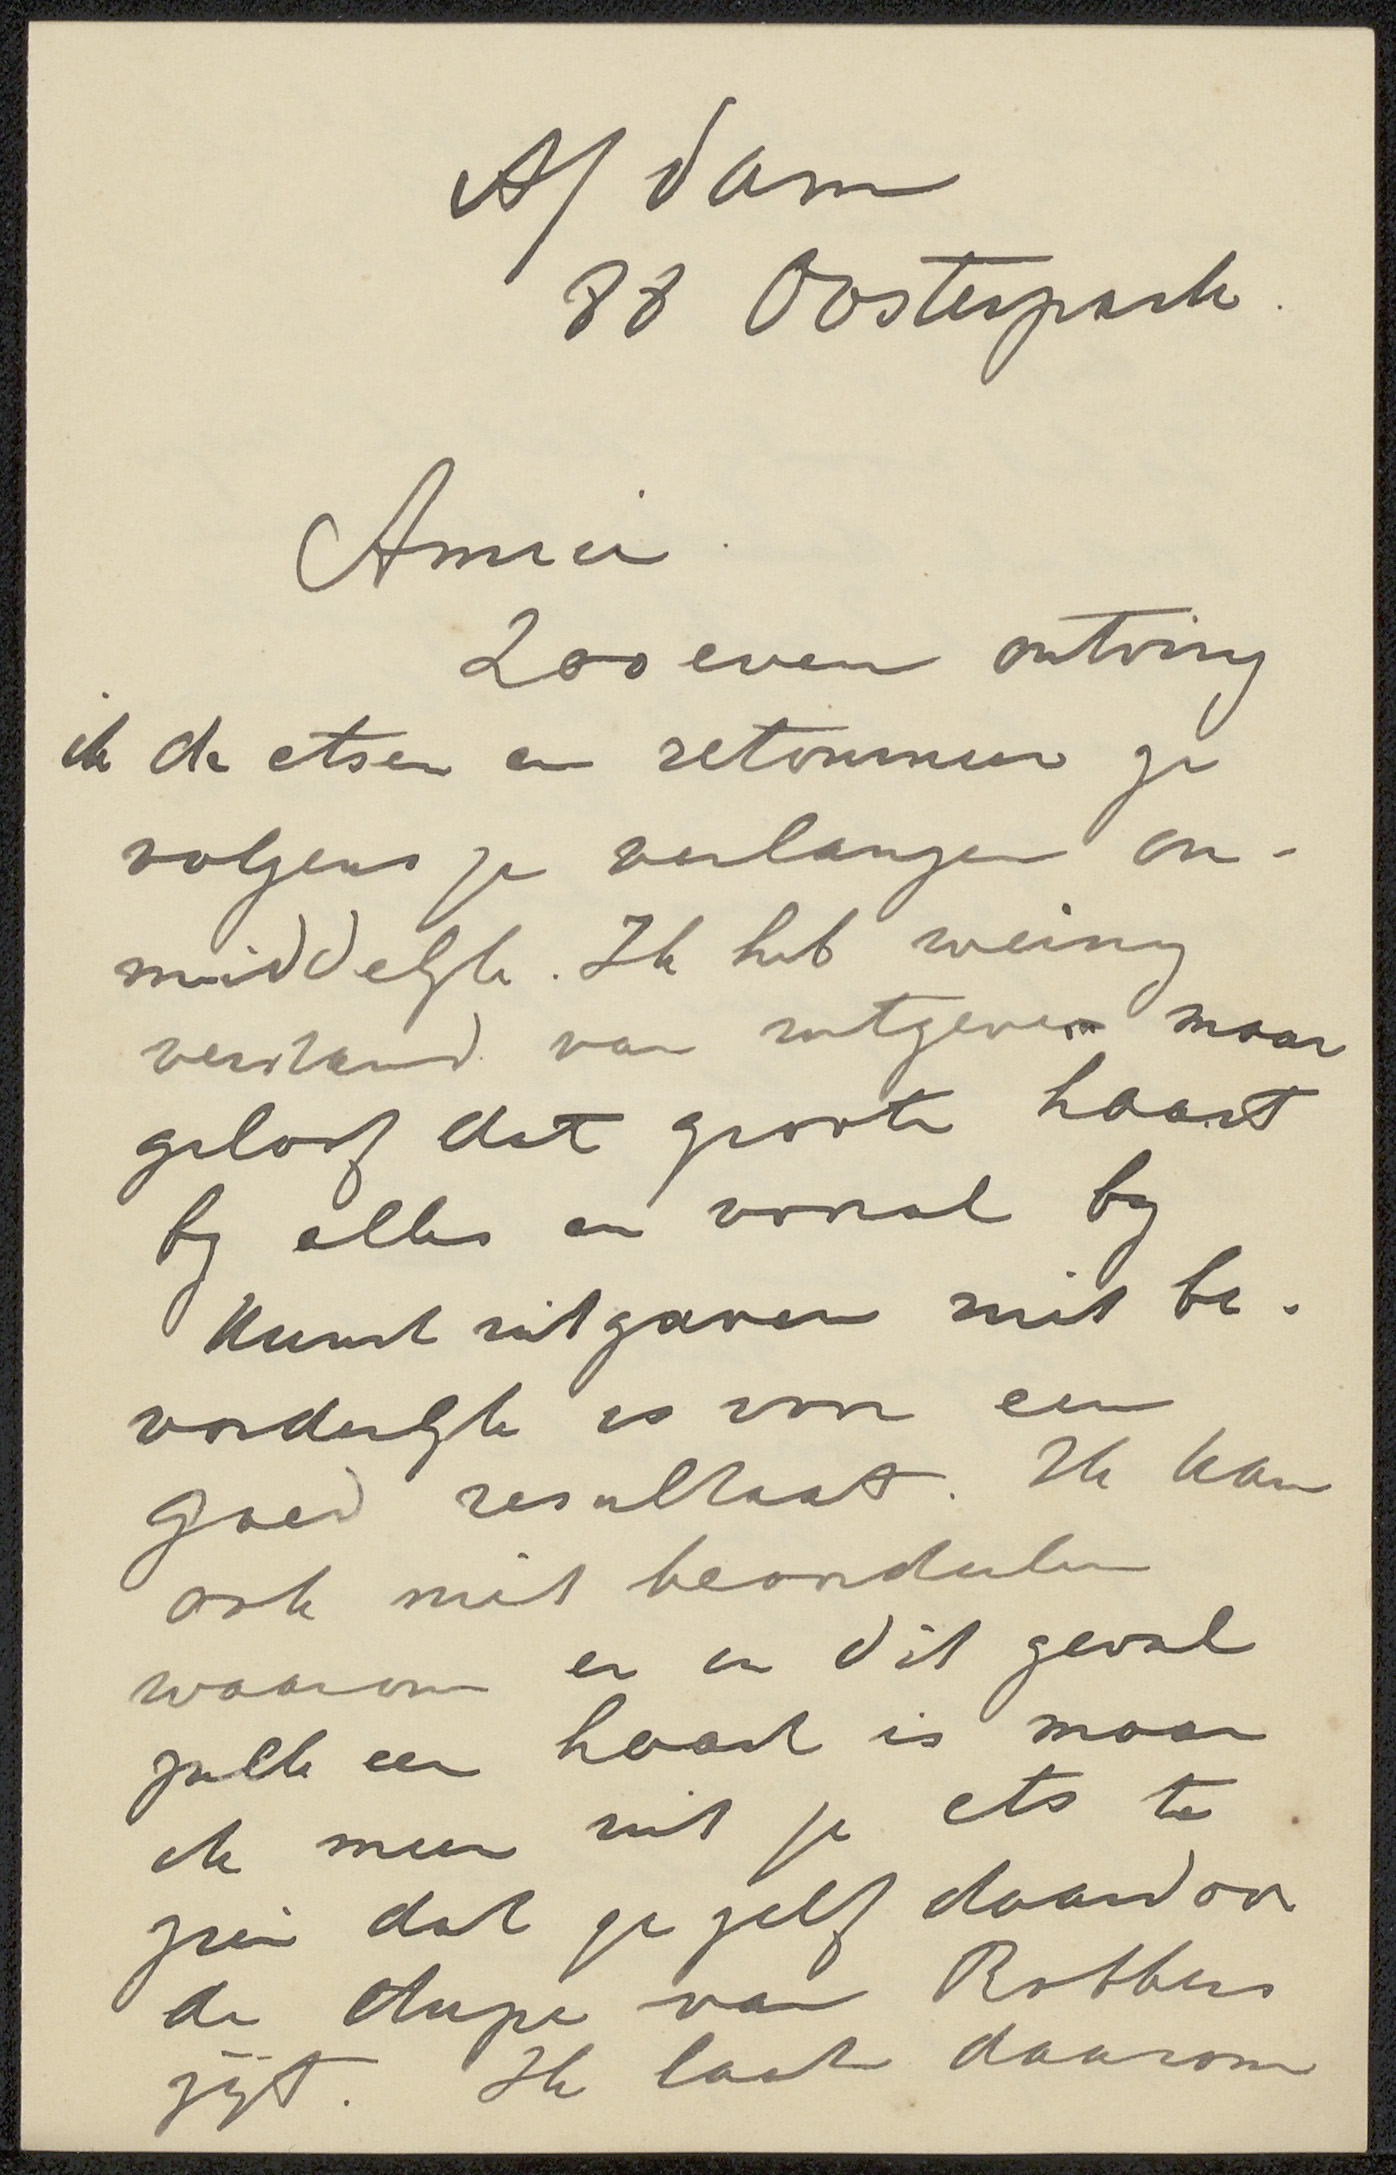 A/dam
88 Oosterpark.
Amice.
Zooeven ontving
ik de etsen en retourneer ze
volgens je verlangen on-
middelyk. Ik heb weinig
verstand van uitgeven maar
geloof dat groote haast
by alles en vooral by
Kunst uitgaven niet be-
vorderlyk is voor een
goed resultaat. Ik kan
ook niet beoordeelen
waarom er in dit geval
zulk een haast is maar
ik meen uit je ets te
zien dat ge zelf daardoor
de dupe van Robbers
zijt. Ik laat daarom